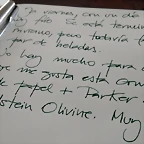 Ya vamos, con un día
muy frío. Se está termin
invierno, pero todavía
par de heladas.
hay mucho para
me gusta esta com
de papel + Parker
stein Olivine. Muy